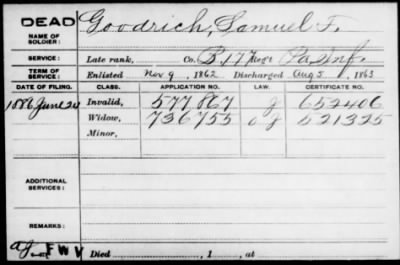 DEAD Goodrich, Samuel F.
NAME OF SOLDIER:
SERVICE: Late rank, Co. B, 177 Reg't Pa. Inf.
TERM OF SERVICE: Enlisted Nov 9, 1862 Discharged Aug 5, 1863
DATE OF FILING. CLASS. APPLICATION NO. LAW. CERTIFICATE NO.
1886 June 24 Invalid, 577867 g 652406
Widow, 736755 521325
Minor,
ADDITIONAL SERVICES:
REMARKS:
F W V Died , 1 , at